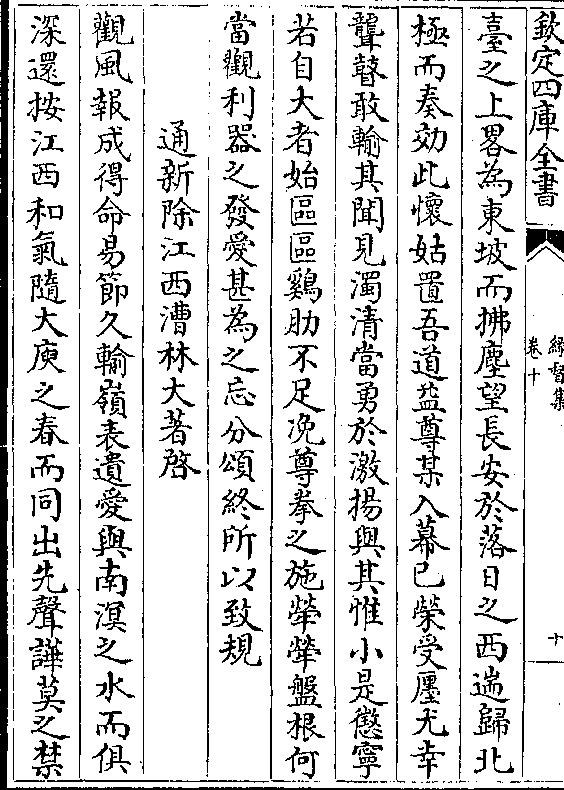 欽定四庫全書
緣督集
卷十
十
臺之上畧為東坡而拂塵望長安於落日之西遄歸北
極而奏効此懷姑置吾道益尊某入幕已榮受廛尤幸
聾瞽敢輸其聞見濁清當勇於激揚與其惟小是懲寧
若自大者始區區鷄肋不足浼尊拳之施犖犖盤根何
當觀利器之發愛甚為之忘分頌終所以致規
通新除江西漕林大著啓
觀風報成得命易節久輸嶺表遺愛與南溟之水而俱
深還按江西和氣隨大庾之春而同出先聲譁莫之禁